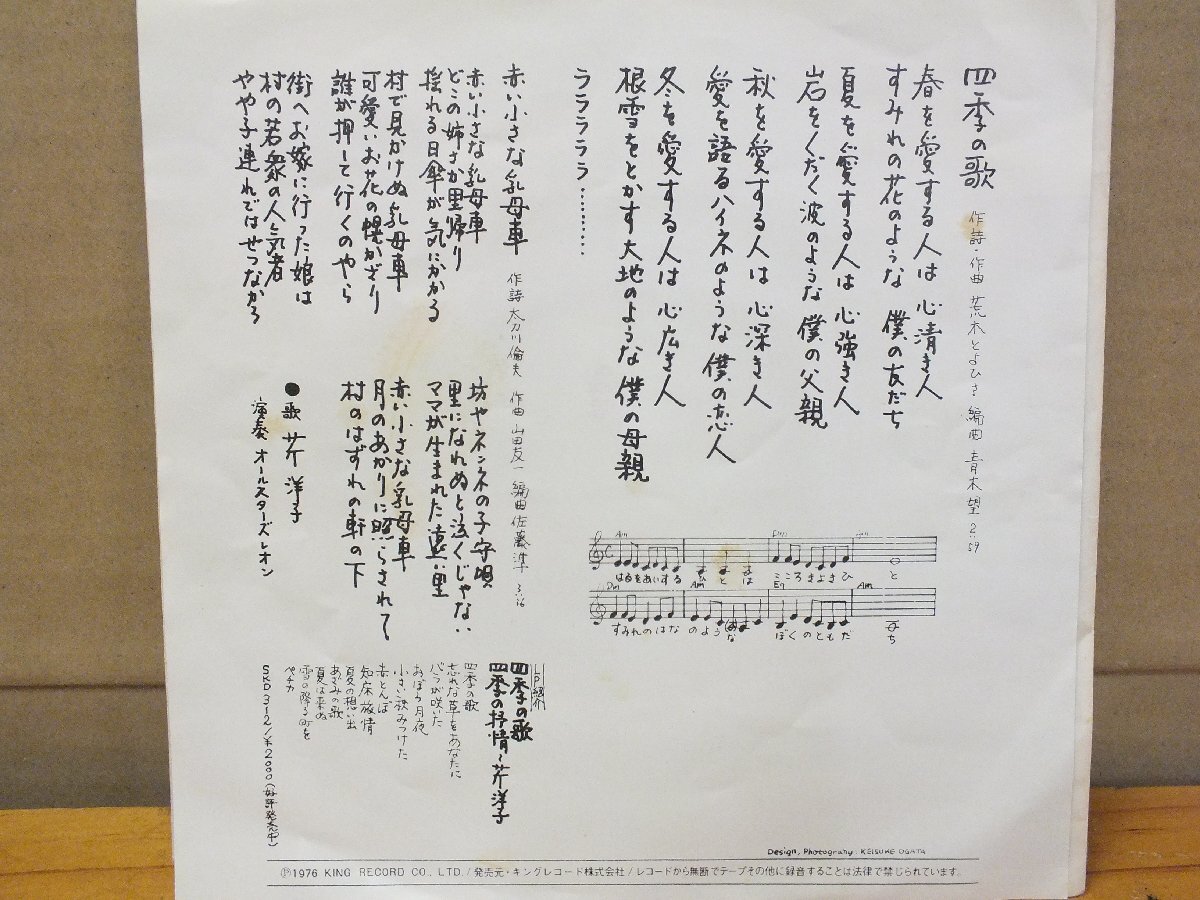 四季の歌 作詩・作曲 荒木とよひさ 編曲 青木望 2:59
春を愛する人は 心清き人
すみれの花のような 僕の友だち
夏を愛する人は 心強き人
岩をくだく波のような 僕の父親
秋を愛する人は 心深き人
愛を語るハイネのような 僕の恋人
冬を愛する人は 心広き人
根雪をとかす大地のような 僕の母親
ラララララ………
Am Dm Am
はるをあいする ひとは こころきよきひ と
Dm Am E7 Am
すみれのはな のような ぼくのともだ ち
赤い小さな乳母車 作詩 太刀川倫夫 作曲 山田友一 編曲 佐藤準 3:16
赤い小さな乳母車
どこの姉さか里帰り
揺れる日傘が気にかかる
村で見かけぬ乳母車
可愛いお花の幌かざり
誰が押して行くのやら
街へお嫁に行った娘は
村の若衆の人気者
やや子連れではせつなかろ
坊やネンネの子守唄
里になれぬと泣くじゃない
ママが生まれた遠い里
赤い小さな乳母車
月のあかりに照らされて
村のはずれの軒の下
●歌 芹洋子
演奏 オールスターズレオン
LP紹介
四季の歌
四季の抒情〜芹洋子
四季の歌
忘れな草をあなたに
心つが咲いた
おぼろ月夜
小さい秋みつけた
赤とんぼ
知床旅情
夏の想い出
あざみの歌
夏は来ぬ
雪の降る町を
ペチカ
SKD312/¥2000(好評発売中)
Design, Photograny: KEISUKE OGATA
Ⓟ1976 KING RECORD CO., LTD./発売元・キングレコード株式会社/レコードから無断でテープその他に録音することは法律で禁じられています。